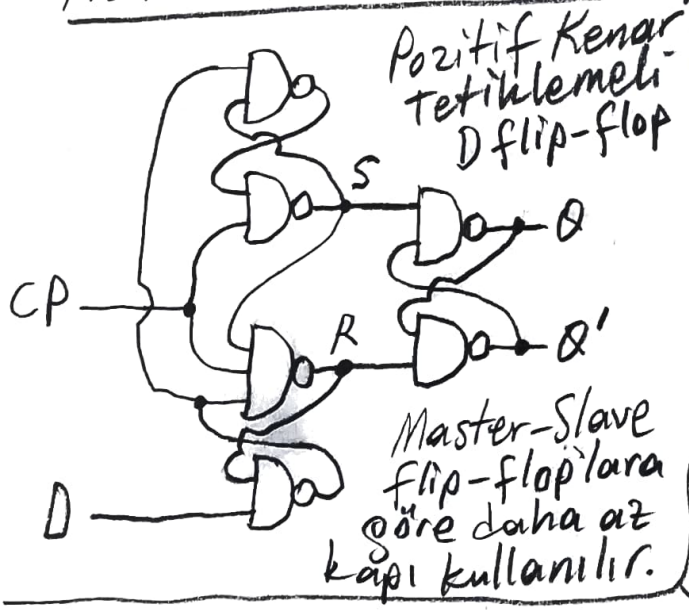 Pozitif Kenar
Tetiklemeli
D flip-flop
S
Q
CP
R
Q'
Master-Slave
flip-flop'lara
D
göre daha az
kapı kullanılır.